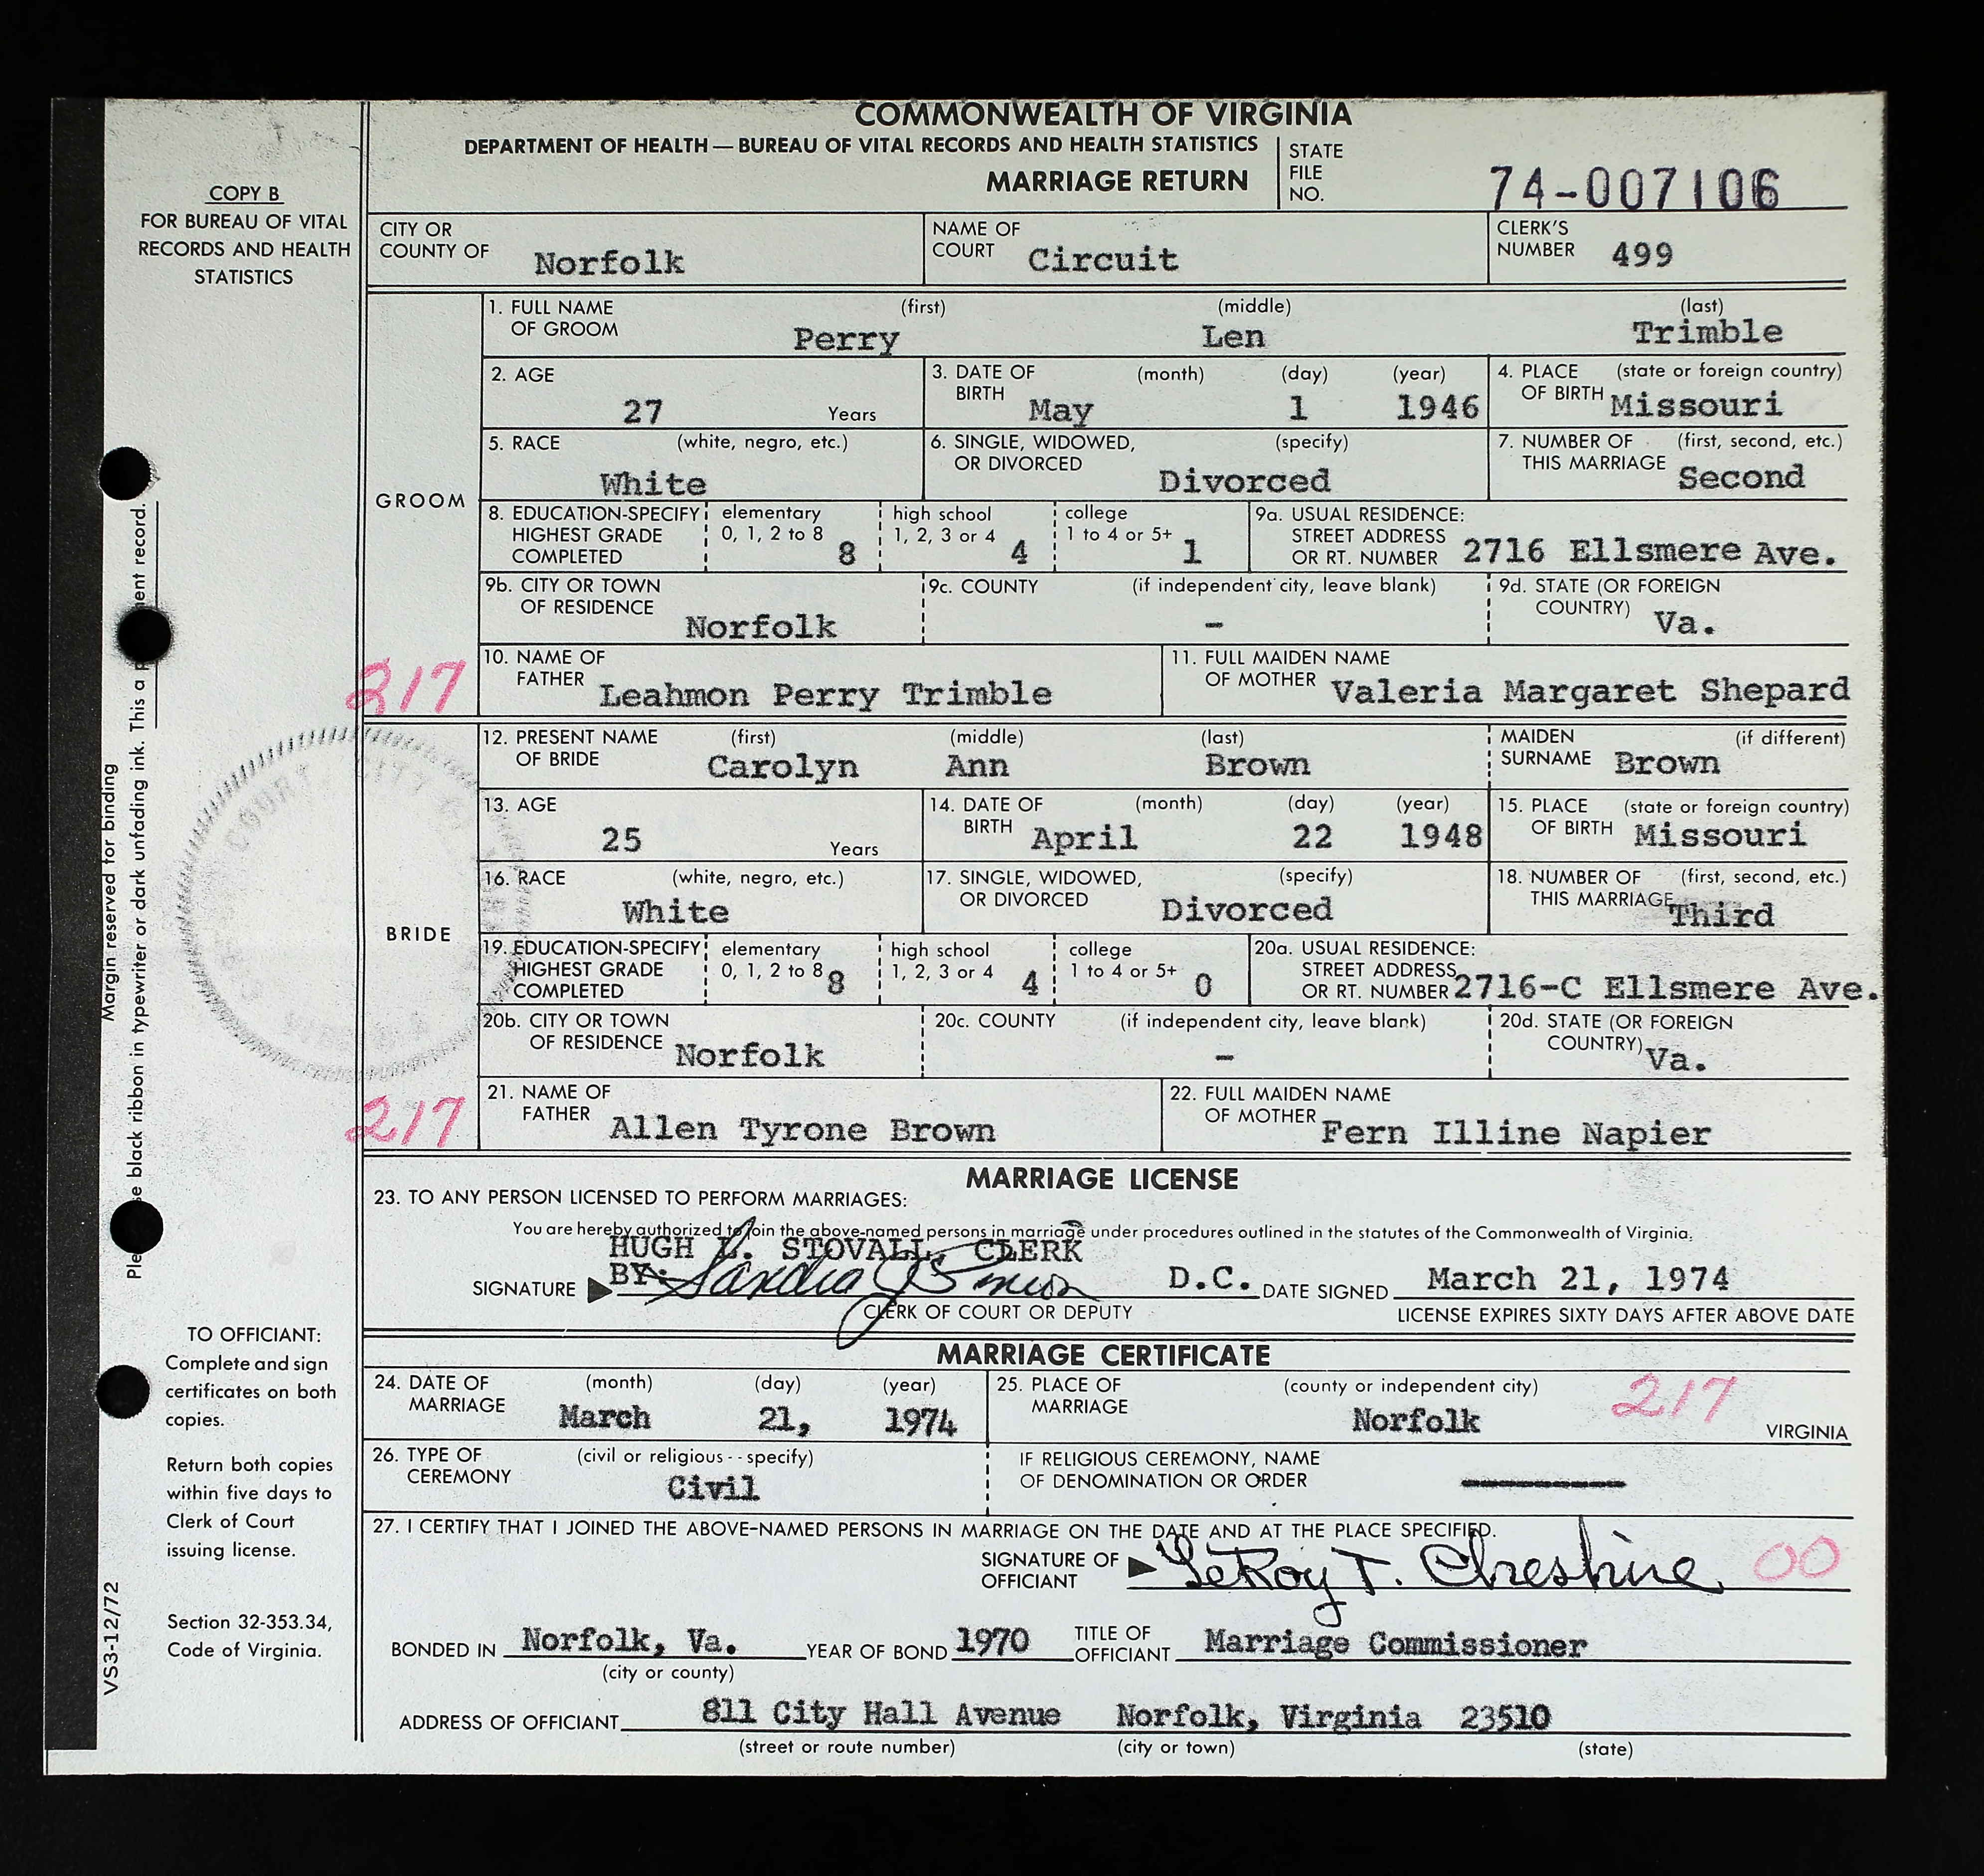 COMMONWEALTH OF VIRGINIA
DEPARTMENT OF HEALTH — BUREAU OF VITAL RECORDS AND HEALTH STATISTICS
MARRIAGE RETURN
STATE FILE NO. 74-007106
COPY B
FOR BUREAU OF VITAL
RECORDS AND HEALTH
STATISTICS
CITY OR COUNTY OF Norfolk
NAME OF COURT Circuit
CLERK'S NUMBER 499
GROOM
1. FULL NAME OF GROOM (first) Perry (middle) Len (last) Trimble
2. AGE 27 Years
3. DATE OF BIRTH (month) May (day) 1 (year) 1946
4. PLACE OF BIRTH (state or foreign country) Missouri
5. RACE (white, negro, etc.) White
6. SINGLE, WIDOWED, OR DIVORCED (specify) Divorced
7. NUMBER OF THIS MARRIAGE (first, second, etc.) Second
8. EDUCATION-SPECIFY HIGHEST GRADE COMPLETED elementary 0, 1, 2 to 8 8 high school 1, 2, 3 or 4 4 college 1 to 4 or 5+ 1
9a. USUAL RESIDENCE: STREET ADDRESS OR RT. NUMBER 2716 Ellsmere Ave.
9b. CITY OR TOWN OF RESIDENCE Norfolk
9c. COUNTY (if independent city, leave blank) -
9d. STATE (OR FOREIGN COUNTRY) Va.
217
10. NAME OF FATHER Leahmon Perry Trimble
11. FULL MAIDEN NAME OF MOTHER Valeria Margaret Shepard
BRIDE
12. PRESENT NAME OF BRIDE (first) Carolyn (middle) Ann (last) Brown
MAIDEN SURNAME (if different) Brown
13. AGE 25 Years
14. DATE OF BIRTH (month) April (day) 22 (year) 1948
15. PLACE OF BIRTH (state or foreign country) Missouri
16. RACE (white, negro, etc.) White
17. SINGLE, WIDOWED, OR DIVORCED (specify) Divorced
18. NUMBER OF THIS MARRIAGE (first, second, etc.) Third
19. EDUCATION-SPECIFY HIGHEST GRADE COMPLETED elementary 0, 1, 2 to 8 8 high school 1, 2, 3 or 4 4 college 1 to 4 or 5+ 0
20a. USUAL RESIDENCE: STREET ADDRESS OR RT. NUMBER 2716-C Ellsmere Ave.
20b. CITY OR TOWN OF RESIDENCE Norfolk
20c. COUNTY (if independent city, leave blank) -
20d. STATE (OR FOREIGN COUNTRY) Va.
217
21. NAME OF FATHER Allen Tyrone Brown
22. FULL MAIDEN NAME OF MOTHER Fern Illine Napier
MARRIAGE LICENSE
23. TO ANY PERSON LICENSED TO PERFORM MARRIAGES:
You are hereby authorized to join the above-named persons in marriage under procedures outlined in the statutes of the Commonwealth of Virginia.
HUGH L. STOVALL, CLERK
SIGNATURE BY: Sandra J D.C. DATE SIGNED March 21, 1974
CLERK OF COURT OR DEPUTY
LICENSE EXPIRES SIXTY DAYS AFTER ABOVE DATE
MARRIAGE CERTIFICATE
24. DATE OF MARRIAGE (month) March (day) 21, (year) 1974
25. PLACE OF MARRIAGE (county or independent city) Norfolk 217 VIRGINIA
26. TYPE OF CEREMONY (civil or religious--specify) Civil
IF RELIGIOUS CEREMONY, NAME OF DENOMINATION OR ORDER
27. I CERTIFY THAT I JOINED THE ABOVE-NAMED PERSONS IN MARRIAGE ON THE DATE AND AT THE PLACE SPECIFIED.
SIGNATURE OF OFFICIANT LeRoy T. Cheshire 00
BONDED IN Norfolk, Va. YEAR OF BOND 1970 TITLE OF OFFICIANT Marriage Commissioner
(city or county)
ADDRESS OF OFFICIANT 811 City Hall Avenue Norfolk, Virginia 23510
(street or route number) (city or town) (state)
Margin reserved for binding
black ribbon in typewriter or dark unfading ink. This a record.
TO OFFICIANT:
Complete and sign
certificates on both
copies.
Return both copies
within five days to
Clerk of Court
issuing license.
Section 32-353.34,
Code of Virginia.
VS3-12/72